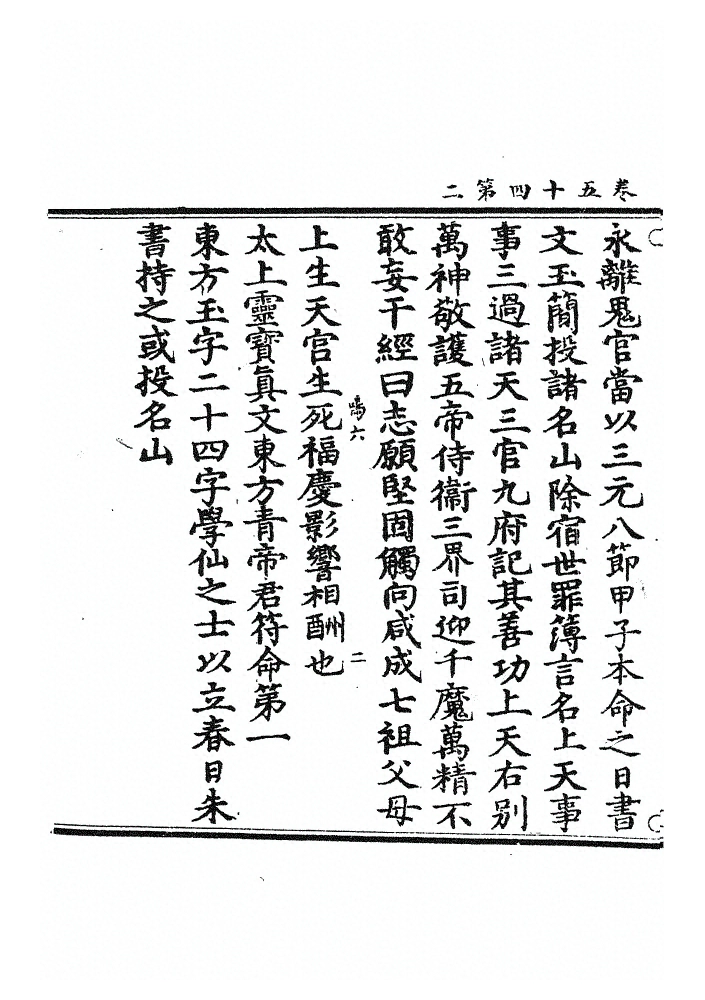 卷五十四第二
永離鬼官當以三元八節甲子本命之日書
文玉簡投諸名山除宿世罪簿言名上天事
事三過諸天三官九府記其善功上天右別
萬神敬護五帝侍衞三界司迎千魔萬精不
敢妄干經曰志願堅固觸向咸成七祖父母
鳴六 二
上生天宫生死福慶影響相酬也
太上靈寶眞文東方青帝君符命第一
東方玉字二十四字學仙之士以立春日朱
書持之或投名山